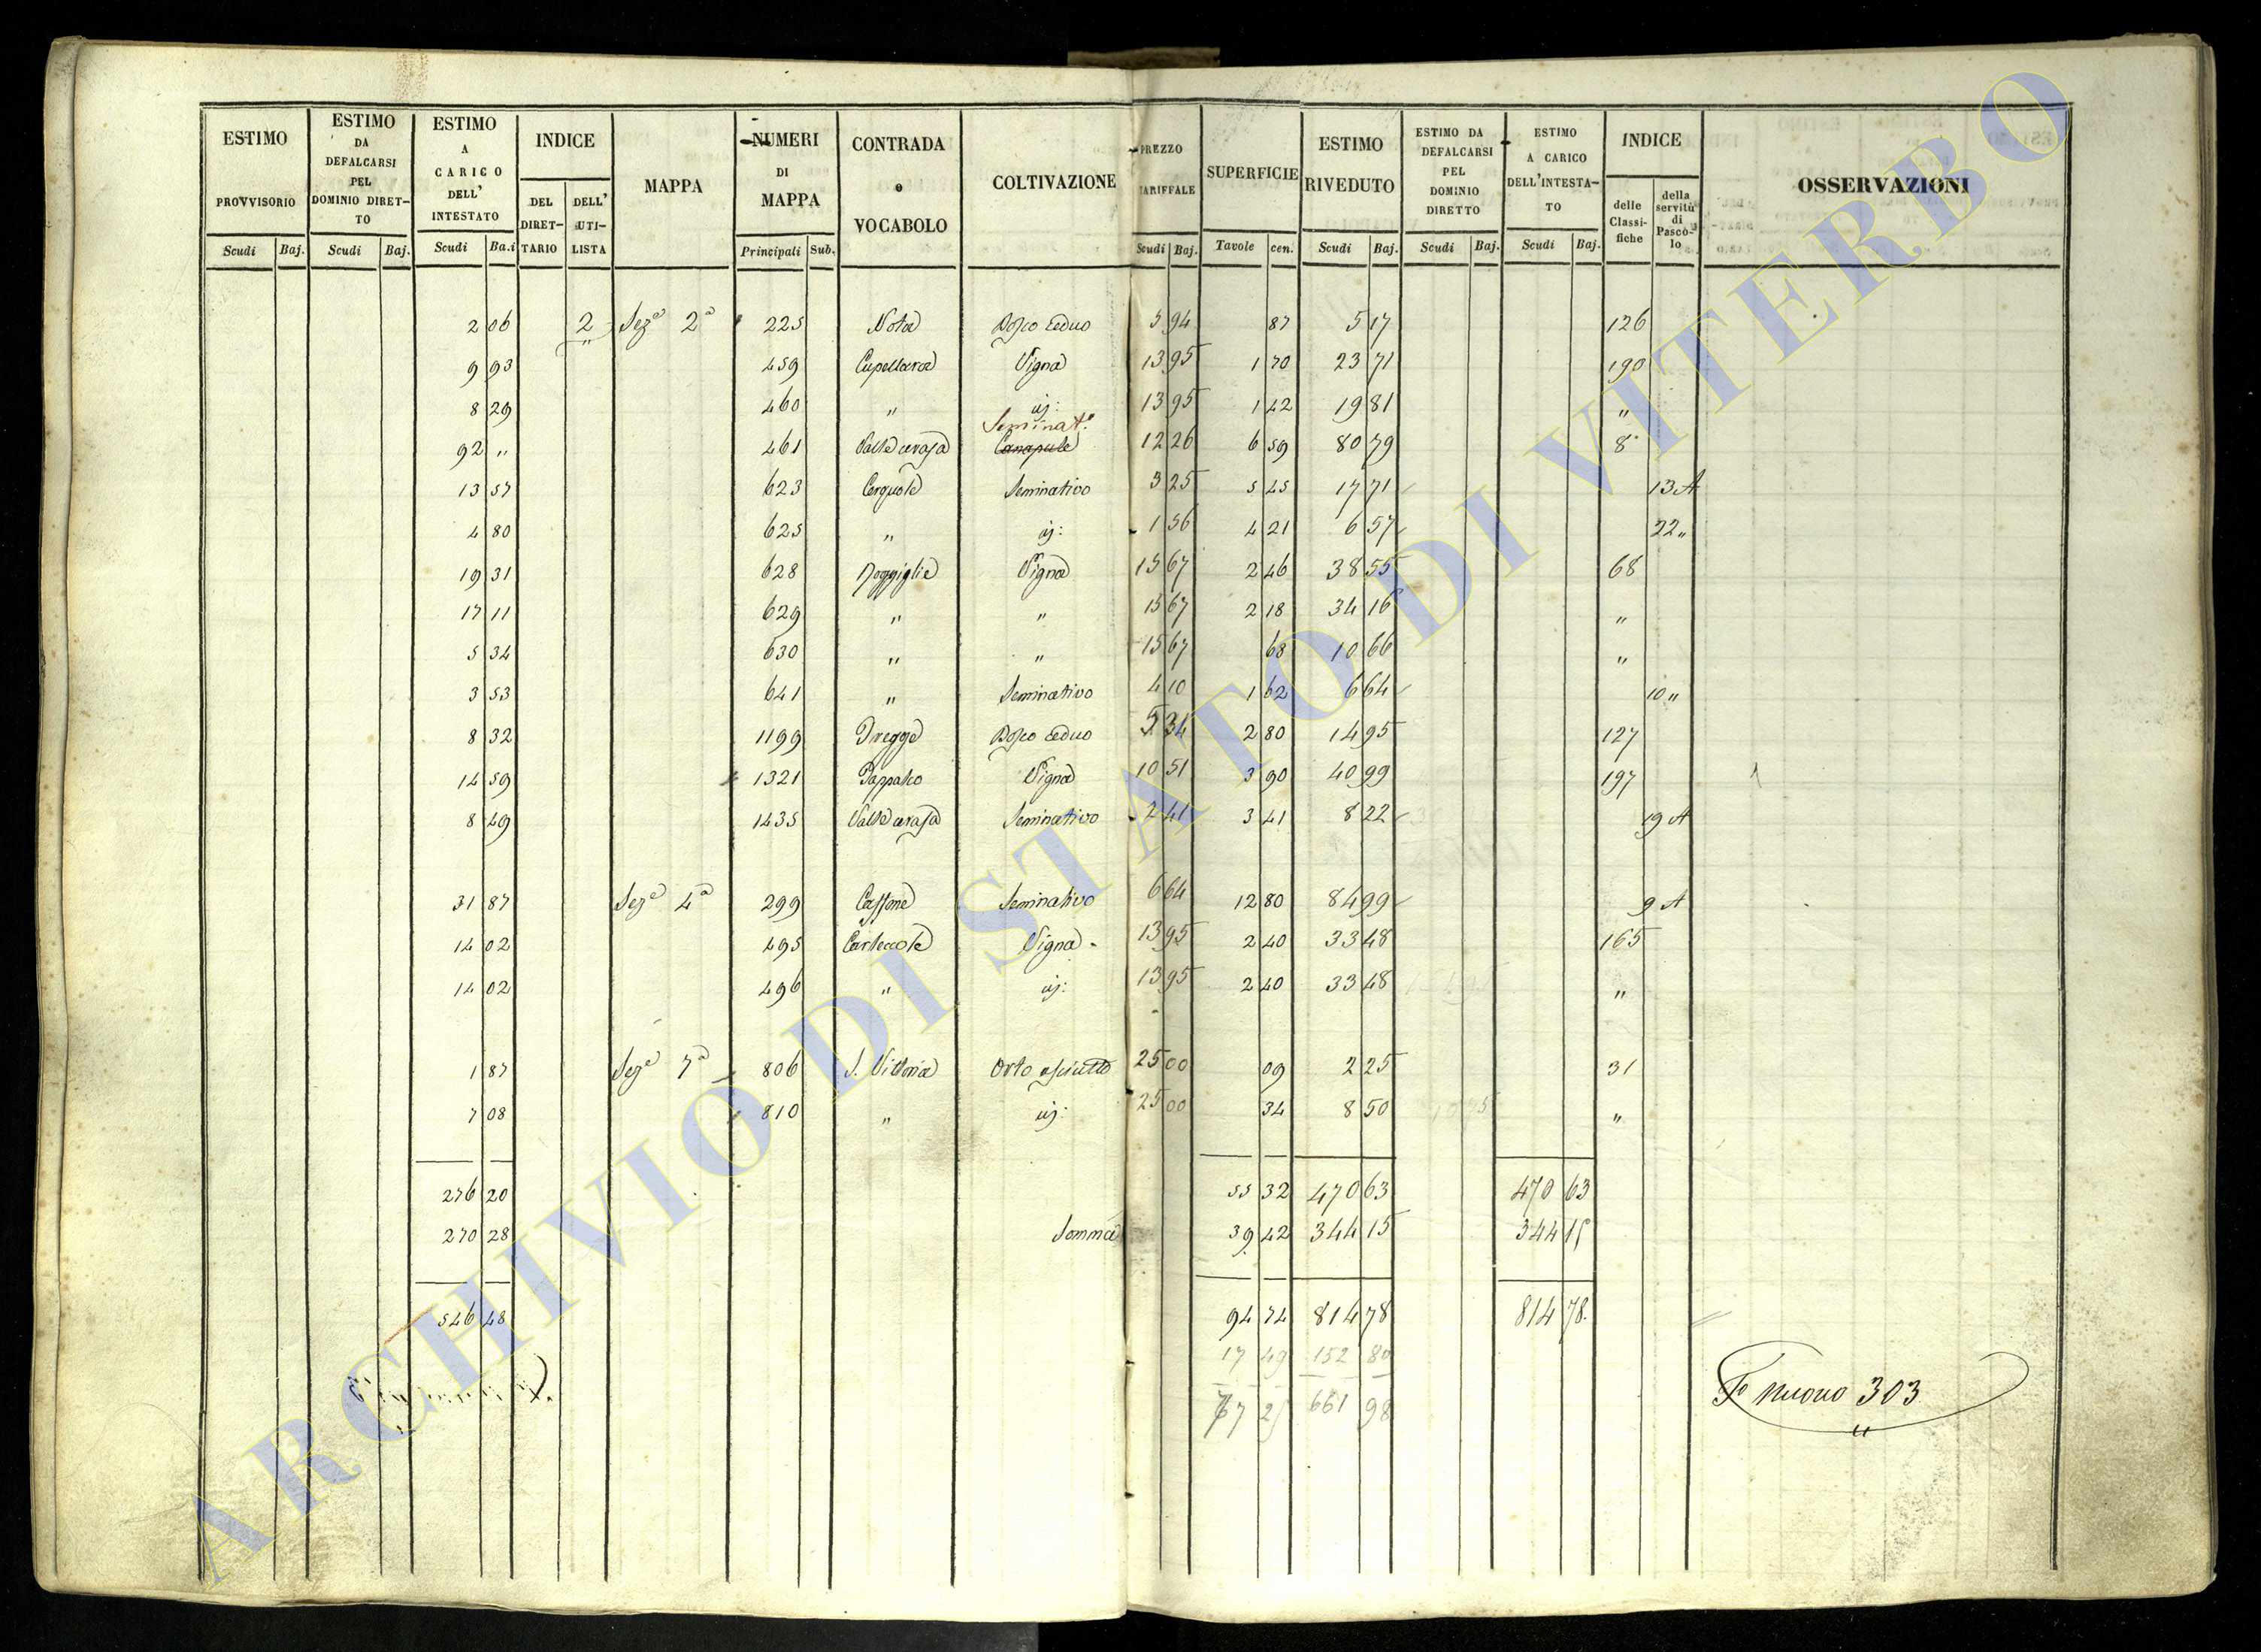 ESTIMO PROVVISORIO | ESTIMO DA DEFALCARSI PEL DOMINIO DIRETTO | ESTIMO A CARICO DELL' INTESTATO | INDICE | MAPPA | NUMERI DI MAPPA | CONTRADA o VOCABOLO | COLTIVAZIONE | PREZZO TARIFFALE | SUPERFICIE | ESTIMO RIVEDUTO | ESTIMO DA DEFALCARSI PEL DOMINIO DIRETTO | ESTIMO A CARICO DELL'INTESTATO | INDICE | OSSERVAZIONI
DEL DIRETTARIO | DELL' UTILISTA | delle Classifiche | della servitù di Pascolo
Scudi | Baj. | Scudi | Baj. | Scudi | Ba.i | Principali | Sub. | Scudi | Baj. | Tavole | cen. | Scudi | Baj. | Scudi | Baj. | Scudi | Baj.
2 06 | 2 | Seze 2a | 225 | Nota | Bosco Ceduo | 5 94 | 87 | 5 17 | 126
9 93 | 459 | Cupellara | Vigna | 13 95 | 1 70 | 23 71 | 190
8 29 | 460 | " | id: | 13 95 | 1 42 | 19 81 | "
Seminat.o
92 " | 461 | Valle cerasa | Canapule | 12 26 | 6 59 | 80 79 | 8
13 57 | 623 | Cerquole | Seminativo | 3 25 | 5 45 | 17 71 | 13 A
4 80 | 625 | " | id: | 1 56 | 4 21 | 6 57 | 22 "
19 31 | 628 | Vigna | 15 67 | 2 46 | 38 55 | 68
17 11 | 629 | " | " | 15 67 | 2 18 | 34 16 | "
5 34 | 630 | " | " | 15 67 | 68 | 10 66 | "
3 53 | 641 | " | Seminativo | 4 10 | 1 62 | 6 64 | 10 "
8 32 | 1199 | Bosco Ceduo | 5 34 | 2 80 | 14 95 | 127
14 59 | 1321 | Vigna | 10 51 | 3 90 | 40 99 | 197
8 49 | 1435 | Valle cerasa | Seminativo | 2 41 | 3 41 | 8 22 | 19 A
31 87 | Seze 4a | 299 | Cassone | Seminativo | 6 64 | 12 80 | 84 99 | 9 A
14 02 | 495 | Vigna | 13 95 | 2 40 | 33 48 | 165
14 02 | 496 | " | id: | 13 95 | 2 40 | 33 48 | "
1 87 | Seze 7a | 806 | S. Vittoria | Orto asciutto | 25 00 | 09 | 2 25 | 31
7 08 | 810 | " | id: | 25 00 | 34 | 8 50 | "
276 20 | 55 32 | 470 63 | 470 63
270 28 | Somma | 39 42 | 344 15 | 344 15
546 48 | 94 74 | 814 78 | 814 78
17 49 | 152 80
67 25 | 661 98
Fo nuovo 303
ARCHIVIO DI STATO DI VITERBO